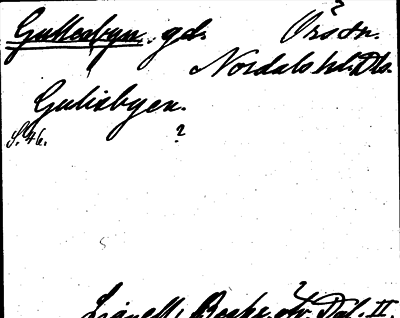 Guttenbyn. gd. Örs sn.
Nordals hd. Dls.
Gulixbyen.
S. 46. ?
Lignell, Beskr. öfv. Dal. II.